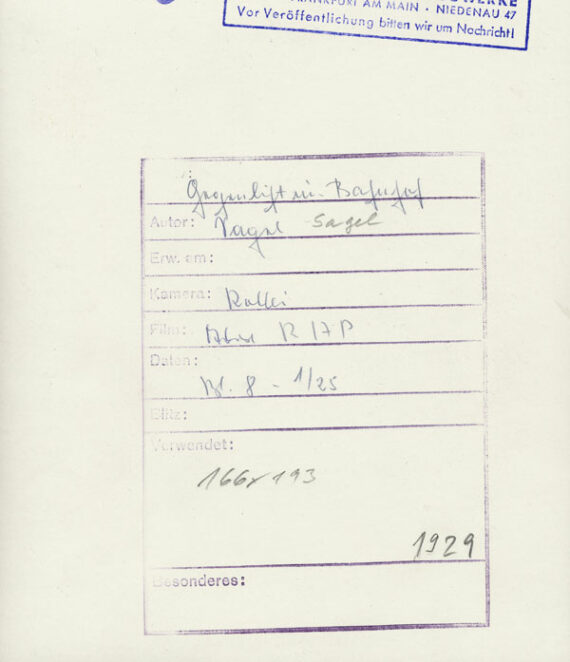 FRANKFURT AM MAIN · NIEDENAU 47
Vor Veröffentlichung bitten wir um Nachricht!
Gegenlicht im Bahnhof
Autor: Sagel Sagel
Erw. am:
Kamera: Rollei
Film: R 17 P
Daten:
Bl. 8 - 1/25
Blitz:
Verwendet:
166x193
1929
Besonderes: